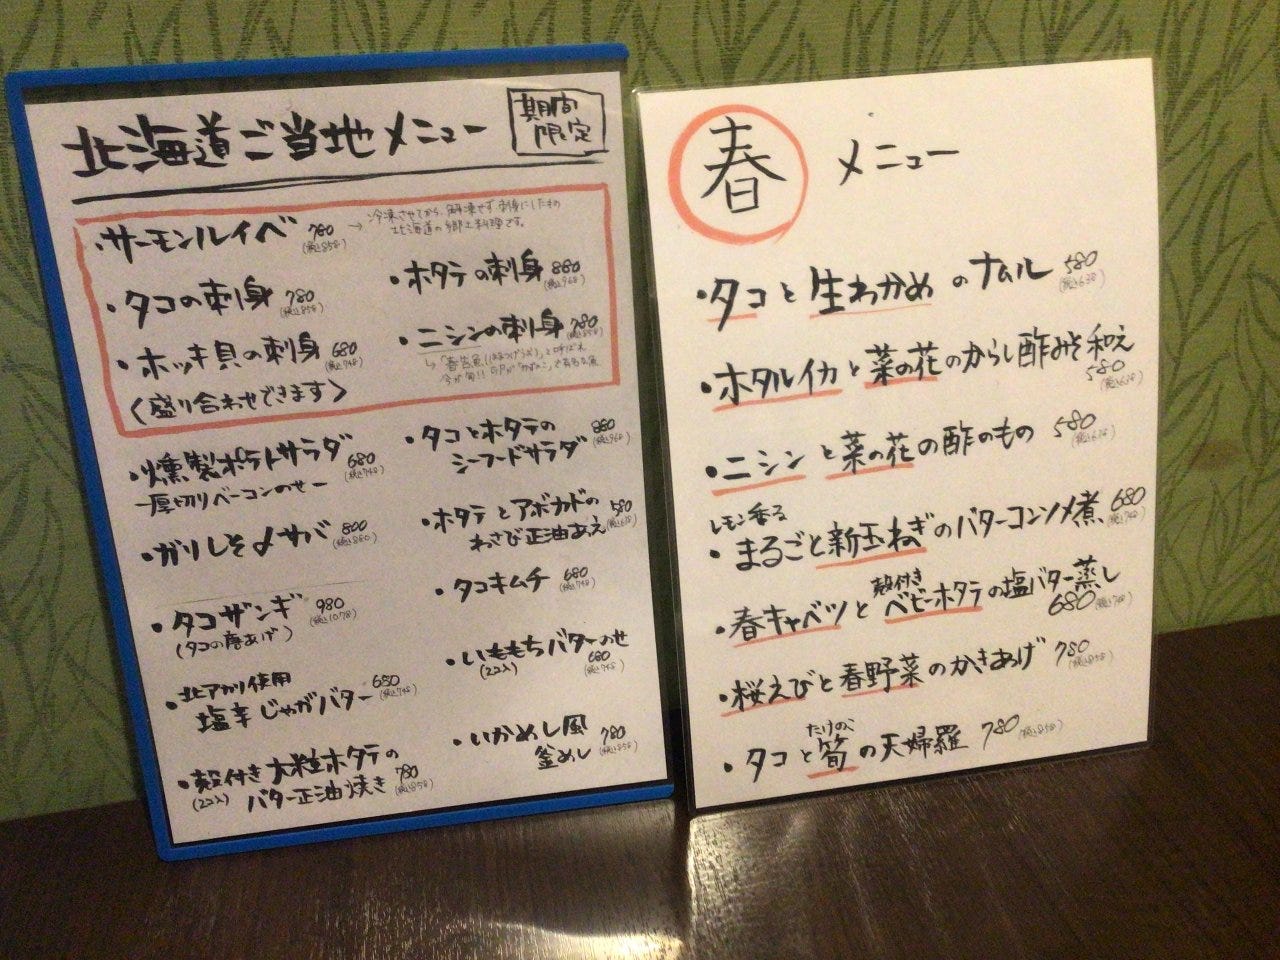 北海道ご当地メニュー
期間
限定
・サーモンルイベ 780
(税込858)
→冷凍させてから、解凍せず刺身にしたもの
北海道の郷土料理です。
・タコの刺身 780
(税込858)
・ホッキ貝の刺身 680
(税込748)
〈盛り合わせできます〉
・ホタテの刺身 880
(税込968)
・ニシンの刺身 780
(税込858)
「春告魚(はるつげうお)」と呼ばれ
今が旬!!
・燻製ポテトサラダ 680
(税込748)
ー厚切りベーコンのせー
・ガリしそ〆サバ 800
(税込880)
・タコザンギ 980
(税込1078)
(タコの唐あげ)
北アカリ使用
・塩辛じゃがバター 680
(税込748)
・殻付き大粒ホタテの
(2コ入) バター正油焼き 780
(税込858)
・タコとホタテの
シーフードサラダ 880
(税込968)
・ホタテとアボカドの
わさび正油あえ 580
(税込638)
・タコキムチ 680
(税込748)
・いももちバターのせ
(2コ入) 680
(税込748)
・いかめし風
釜めし 780
(税込858)
春 メニュー
・タコと生わかめのナムル 580
(税込638)
・ホタルイカと菜の花のからし酢みそ和え
580
(税込638)
・ニシンと菜の花の酢のもの 580
(税込638)
レモン香る
・まるごと新玉ねぎのバターコンソメ煮 680
(税込748)
殻付き
・春キャベツとベビーホタテの塩バター蒸し
680(税込748)
・桜えびと春野菜のかきあげ 780
(税込858)
たけのこ
・タコと筍の天婦羅 780(税込858)